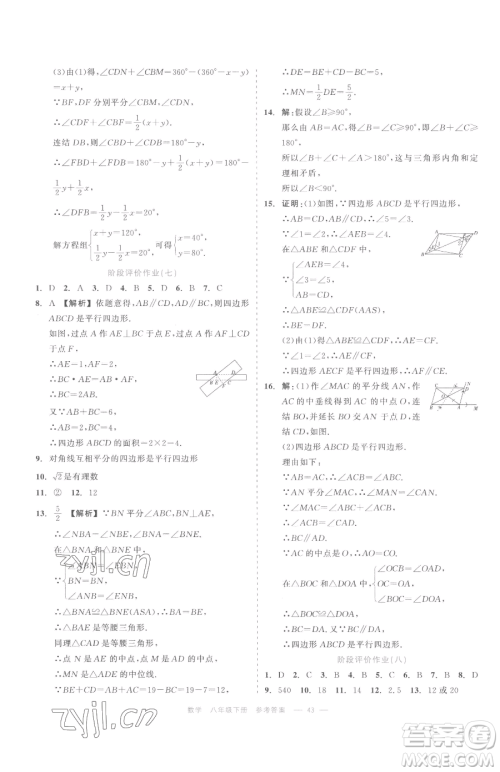 (3)由(1)得,∠CDN+∠CBM=360°-(360°
-x-y)=x+y.
∵BF,DF分别平分∠CBM,∠CDN,
∴∠CDF+∠CBF=1/2(x+y).
连结DB,则∠CBD+∠CDB=180°-y,
∴∠FBD+∠FDB=180°-y+1/2(x+y)=180°-
1/2y+1/2x,
∴∠DFB=1/2y-1/2x=20°,
解方程组{x+y=120°, 1/2y-1/2x=20°,可得{x=40°, y=80°.
阶段评价作业(七)
1. D 2. A 3. D 4. D 5. D 6. B 7. C
8. A 【解析】依题意得,AB∥CD,AD∥BC,则四边形
ABCD是平行四边形.
如图,过点A作AE⊥BC于点E,过点A作AF⊥
CD于点F,
∴AE=1,AF=2,
∴BC·AE=CD·AF,
∴BC=2AB.
又∵AB+BC=6,
∴AB=2,
∴四边形ABCD的面积=2×2=4.
9. 对角线互相平分的四边形是平行四边形
10. √2是有理数
11. ② 12. 12
13. 5/2 【解析】∵BN平分∠ABC,BN⊥AE,
∴∠NBA=∠NBE,∠BNA=∠BNE.
在△BNA和△BNE中,
∵{∠ABN=∠EBN, BN=BN, ∠ANB=∠ENB,
∴△BNA≌△BNE(ASA),
∴BA=BE,
∴△BAE是等腰三角形.
同理△CAD是等腰三角形,
∴点N是AE的中点,点M是AD的中点,
∴MN是△ADE的中位线.
∵BE+CD=AB+AC=19-BC=19-7=12,
∴DE=BE+CD-BC=5,
∴MN=1/2DE=5/2.
14. 解:假设∠B≥90°,
因为AB=AC,所以∠B=∠C≥90°,所以∠B+∠C≥
180°,
所以∠A+∠B+∠C>180°,这与三角形内角和定
理相矛盾,
所以∠B<90°.
15. 证明:(1)∵四边形ABCD是平行四边形,
∴AB=CD,AB∥CD,∴∠5=∠3.
∵∠1=∠2,∴∠AEB=∠4.
在△ABE和△CDF中,
∵{∠AEB=∠4, ∠3=∠5, AB=CD,
∴△ABE≌△CDF(AAS),∴BE=DF.
(2)由(1)得△ABE≌△CDF,∴AE=CF.
∵∠1=∠2,∴AE∥CF,
∴四边形AECF是平行四边形.
16. 解:(1)作∠MAC的平分线AN,作
AC的中垂线得到AC的中点O,连
结BO,并延长交AN于点D,连结
CD.
(2)四边形ABCD是平行四边形.
理由如下:
∵AB=AC,
∴∠ABC=∠ACB.
∵AN平分∠MAC,
∴∠MAN=∠CAN.
∵∠MAC=∠ABC+∠ACB,
∴∠ACB=∠CAD,∴BC∥AD.
∵AC的中点是O,∴AO=CO.
在△BOC和△DOA中,
∵{∠OCB=∠OAD, OC=OA, ∠BOC=∠DOA,
∴△BOC≌△DOA(ASA),∴BC=AD.
∵BC∥AD,
∴四边形ABCD是平行四边形.
阶段评价作业(八)
1. D 2. C 3. B 4. C 5. C 6. D 7. D 8. C
9. 540 10. 18 11. 14 12. 4 13. 12或20
数学 八年级下册 参考答案 — 43 —
zyjl.cn
zyjl.cn
答案圈
MXQE.COM